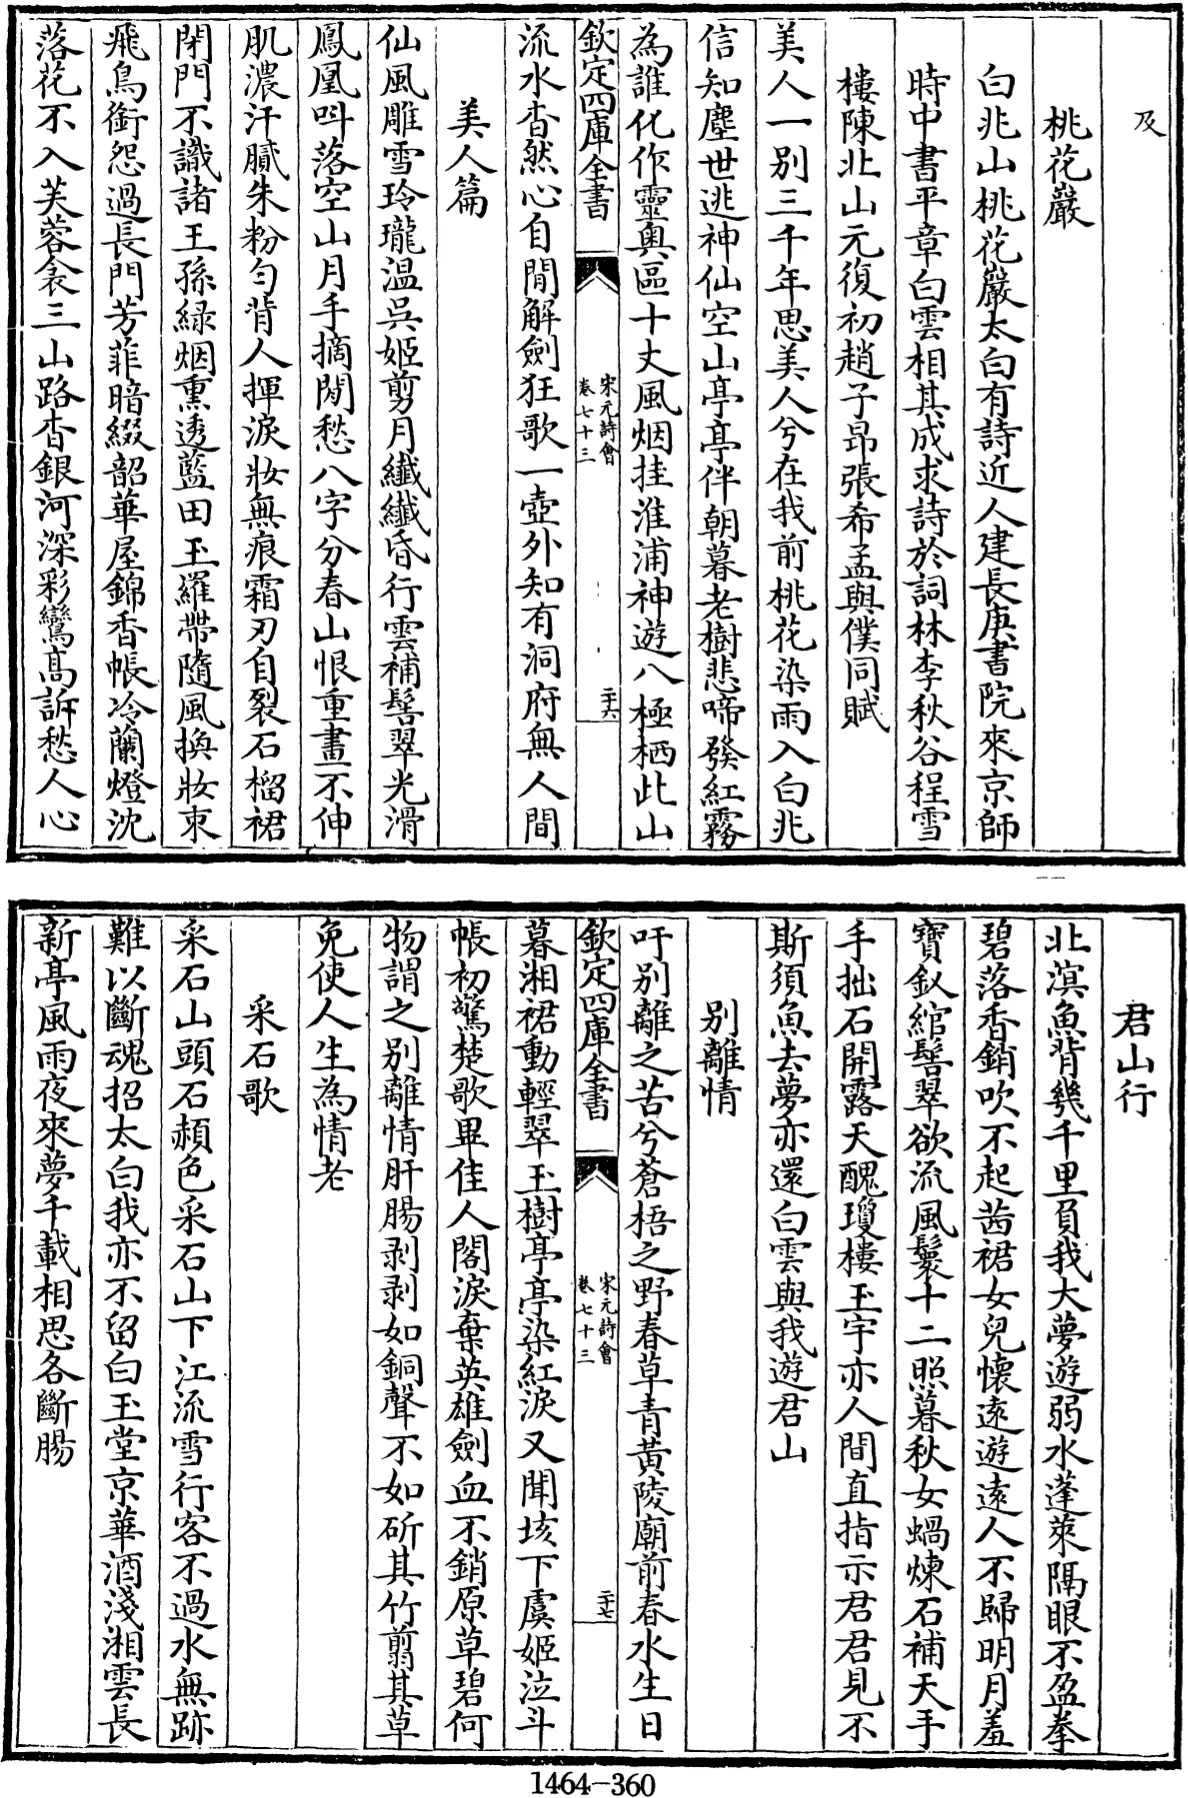 及
桃花巖
白兆山桃花巖太白有詩近人建長庚書院來京師
時中書平章白雲相其成求詩於詞林李秋谷程雪
樓陳北山元復初趙子昻張希孟與僕同賦
美人一别三千年思美人兮在我前桃花染雨入白兆
信知塵世逃神仙空山亭亭伴朝暮老樹悲啼發紅霧
為誰化作靈奥區十丈風烟挂淮浦神遊八極栖此山
欽定四庫全書
宋元詩會
卷七十三
二十六
流水杳然心自閒解劍狂歌一壺外知有洞府無人間
美人篇
仙風雕雪玲瓏温吳姬剪月纖纖昏行雲補髻翠光滑
鳳凰呌落空山月手摘閒愁八字分春山恨重畫不伸
肌濃汗膩朱粉勻背人揮淚妝無痕霜刃自裂石榴裙
閉門不識諸王孫緑烟熏透藍田玉羅帶隨風換妝束
飛鳥銜怨過長門芳菲暗綴韶華屋錦香帳冷蘭燈沈
落花不入芙蓉衾三山路杳銀河深彩鸞髙訴愁人心
君山行
北溟魚背幾千里負我大夢遊弱水蓬萊隔眼不盈拳
碧落香銷吹不起茜裙女兒懷逺遊逺人不歸明月羞
寶釵綰髻翠欲流風鬟十二照暮秋女媧煉石補天手
手拙石開露天醜瓊樓玉宇亦人間直指示君君見不
斯須魚去夢亦還白雲與我遊君山
别離情
吁别離之苦兮蒼梧之野春草青黄陵廟前春水生日
欽定四庫全書
宋元詩會
卷七十三
二十七
暮湘裙動輕翠玉樹亭亭染紅淚又聞垓下虞姬泣斗
帳初驚楚歌畢佳人閣淚棄英雄劍血不銷原草碧何
物謂之别離情肝腸剥剥如銅聲不如斫其竹翦其草
免使人生為情老
采石歌
采石山頭石頳色采石山下江流雪行客不過水無跡
難以斷魂招太白我亦不留白玉堂京華酒淺湘雲長
新亭風雨夜來夢千載相思各斷腸
1464—360